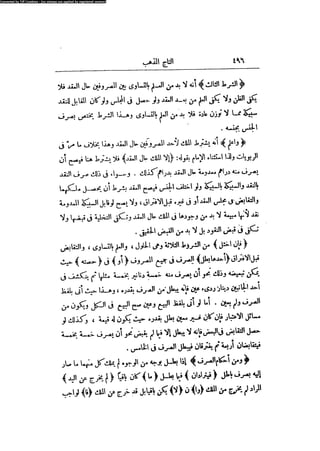 Converted by Tiff Combine - (no stamps are applied by registered version)
٤٩٦ التاج المذهب
﴿ الشرط الثالث ﴾ أنه لا بد من العلم بالتساوي بين المصروفين حال العقد فلا
يكفي الظن ولا يكفي العلم من بعد العقد ولو حصل في المجلس ولو كان المقابل للنقد
سبيكة مما لا توزن عادة فلا بد من العلم بالتساوي وهذا الشرط يختص بصرف
الجنس بجنسه .
﴿ واعلم ﴾ أنه يشترط الملك لأحد المصروفين حال العقد وهذا بخلاف ما مر في
الربويات ولذا استثناه الإمام بقوله : ( إلا الملك حال العقد ) فلا يشترط هنا فيصح أن
يصرف منه دراهم معدومة حال العقد بدراهم كذلك . وسواء في ذلك صرف النقد
بالنقد والسبيكة بالسبيكة ولو اختلف الجنس فيصح العقد بشرط أن يحصل ملكهما
والتقابض في مجلس العقد أو في غيره قبل الافتراق ، ولا يصح لو قابل السبيكة المعدومة
نقد لأنها مبيعة لا بد من وجودها في الملك حال العقد وتكفي التخلية في قبضها ولا
تكفي في قبض النقود بل لا بد من القبض الحقيقي .
( فإن اختل ) من الشروط الثلاثة وهي الحلول ، والعلم بالتساوي ، والتقابض
قبل الافتراق ( أحدها بطل ) الصرف في جميع المصروف ( أو ) في ( حصته ) حيث
يمكن تبعيضه وذلك نحو أن يصرف منه خمسة دنانير بخمسة مثلها ثم ينكشف في
أحد الجانبين دينار رديء عين فإنه يبطل من الصرف بقدره ، وهذا حيث أتى بلفظ
الصرف ولم يعين . أما لو أتى بلفظ البيع وعين صح البيع في الكل ويكون من
مسائل الاعتبار فإن كان غير معين بطل بقدره حيث يكون له قيمة ، وكذلك لو
حصل التقابض في البعض فإنه لا يبطل إلا فيما لم يقبض نحو أن يصرف خمسة بخمسة
فيتقابضان أربعة ثم يفترقان فيبطل الصرف في الخامس .
﴿ ومن أحكام الصرف ﴾ إذا بطل بوجه من الوجوه لم يملك كل منهما ما صار
إليه بصرف باطل ( فيترادان ) فيما بطل ( ما ) كان باقياً ( لم يخرج عن اليد )
المراد لم يخرج عن الملك ( وإ ) ن ( لا ) يكن باقيا بل قد خرج عن الملك ( فا ) لواجب